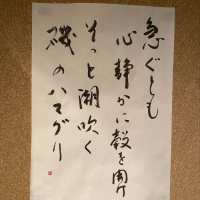 急ぐとも
心静かに殻を開け
そっと潮吹く
磯のハマグリ